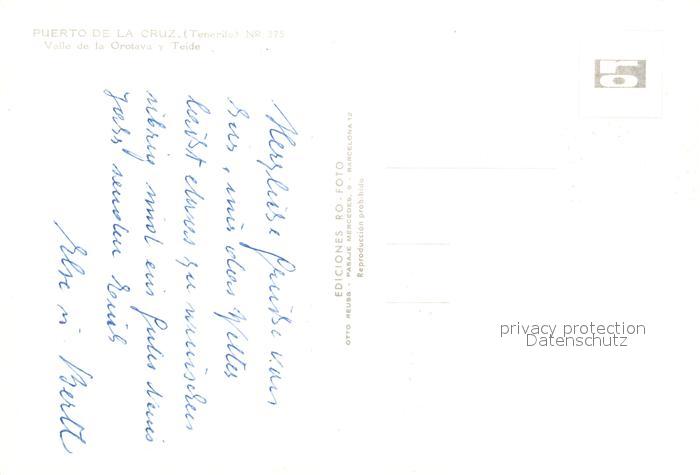 PUERTO DE LA CRUZ. (Tenerife) NR 375
Valle de la Orotava y Teide
Herzliche Grüße von
hier, nur das Wetter
läßt etwas zu wünschen
übrig und ein gutes neues
Jahr senden Euch
Else u. Bertl
EDICIONES RO-FOTO
OTTO REUSS - PASAJE MERCEDES, 9 - BARCELONA 12
Reproducción prohibida
privacy protection
Datenschutz